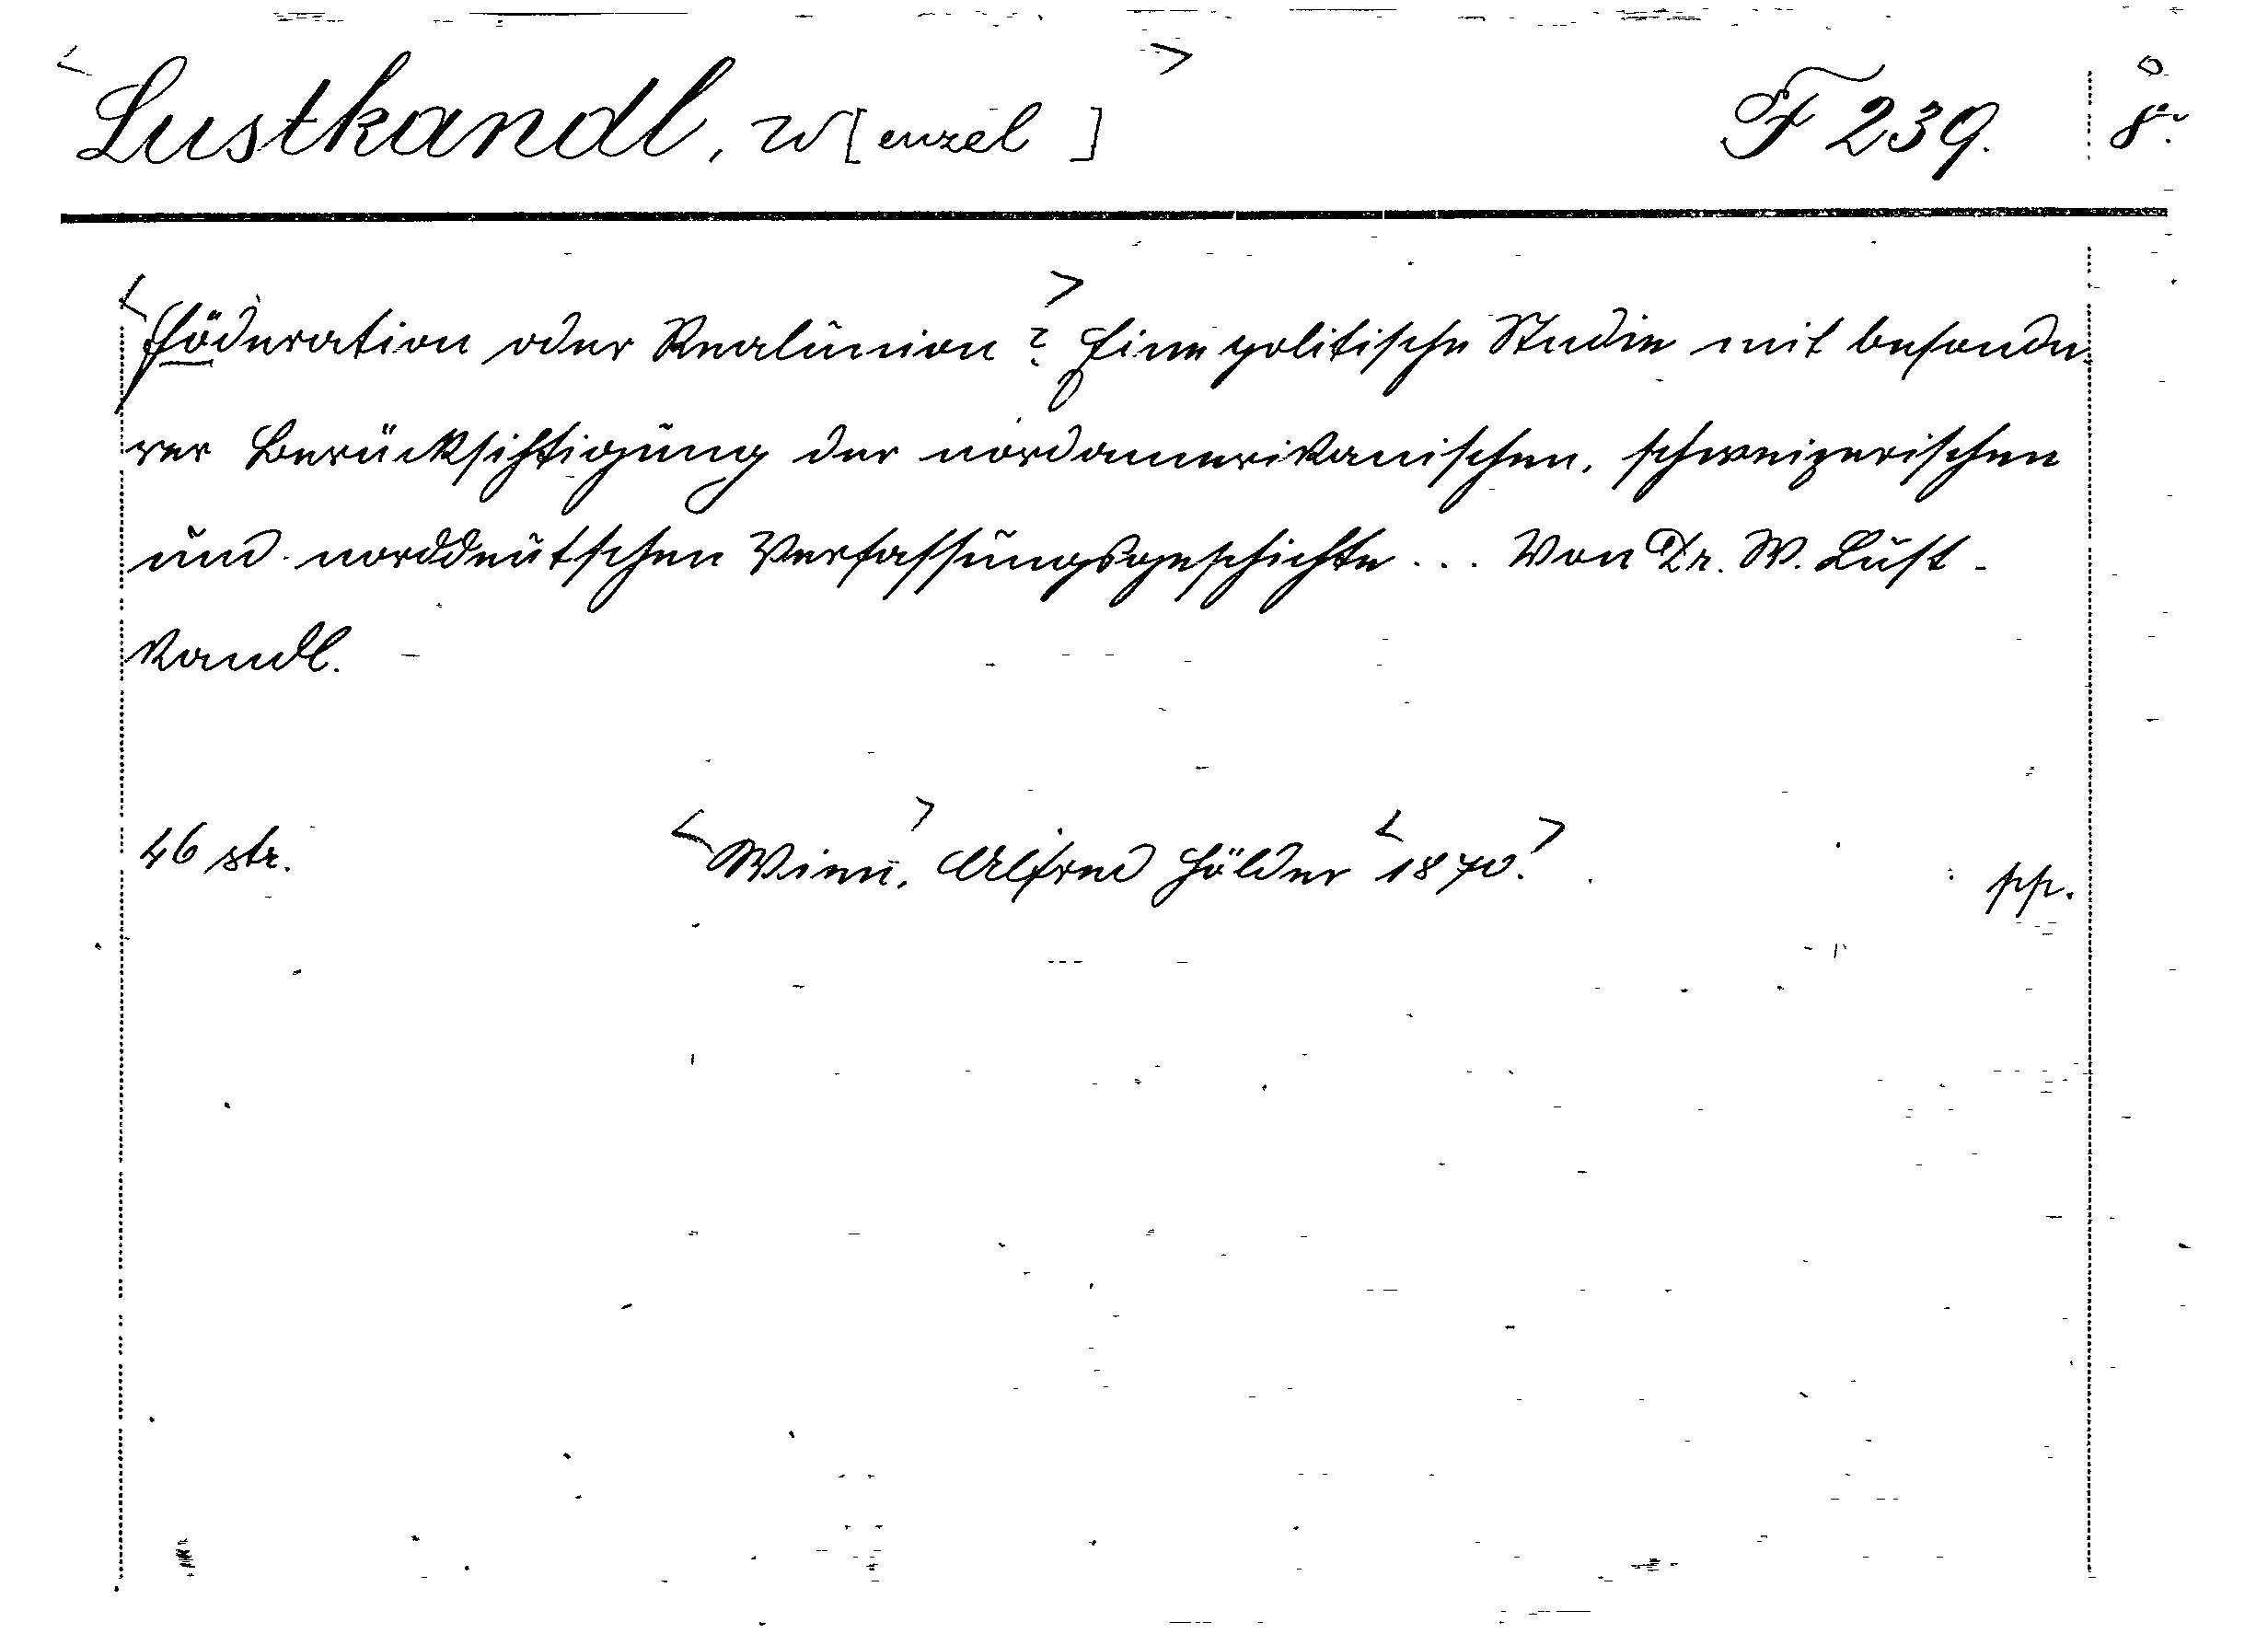 <Lustkandl, W[enzel]> F 239. 8°.
<Föderation oder Realunion?> Eine politische Studie mit besonde-
rer Berücksichtigung der nordamerikanischen, schweizerischen
und norddeutschen Verfassungsgeschichte... Von Dr. W. Lust-
kandl. -
46 str. <Wien,> Alfred Hölder <1870.> pp.